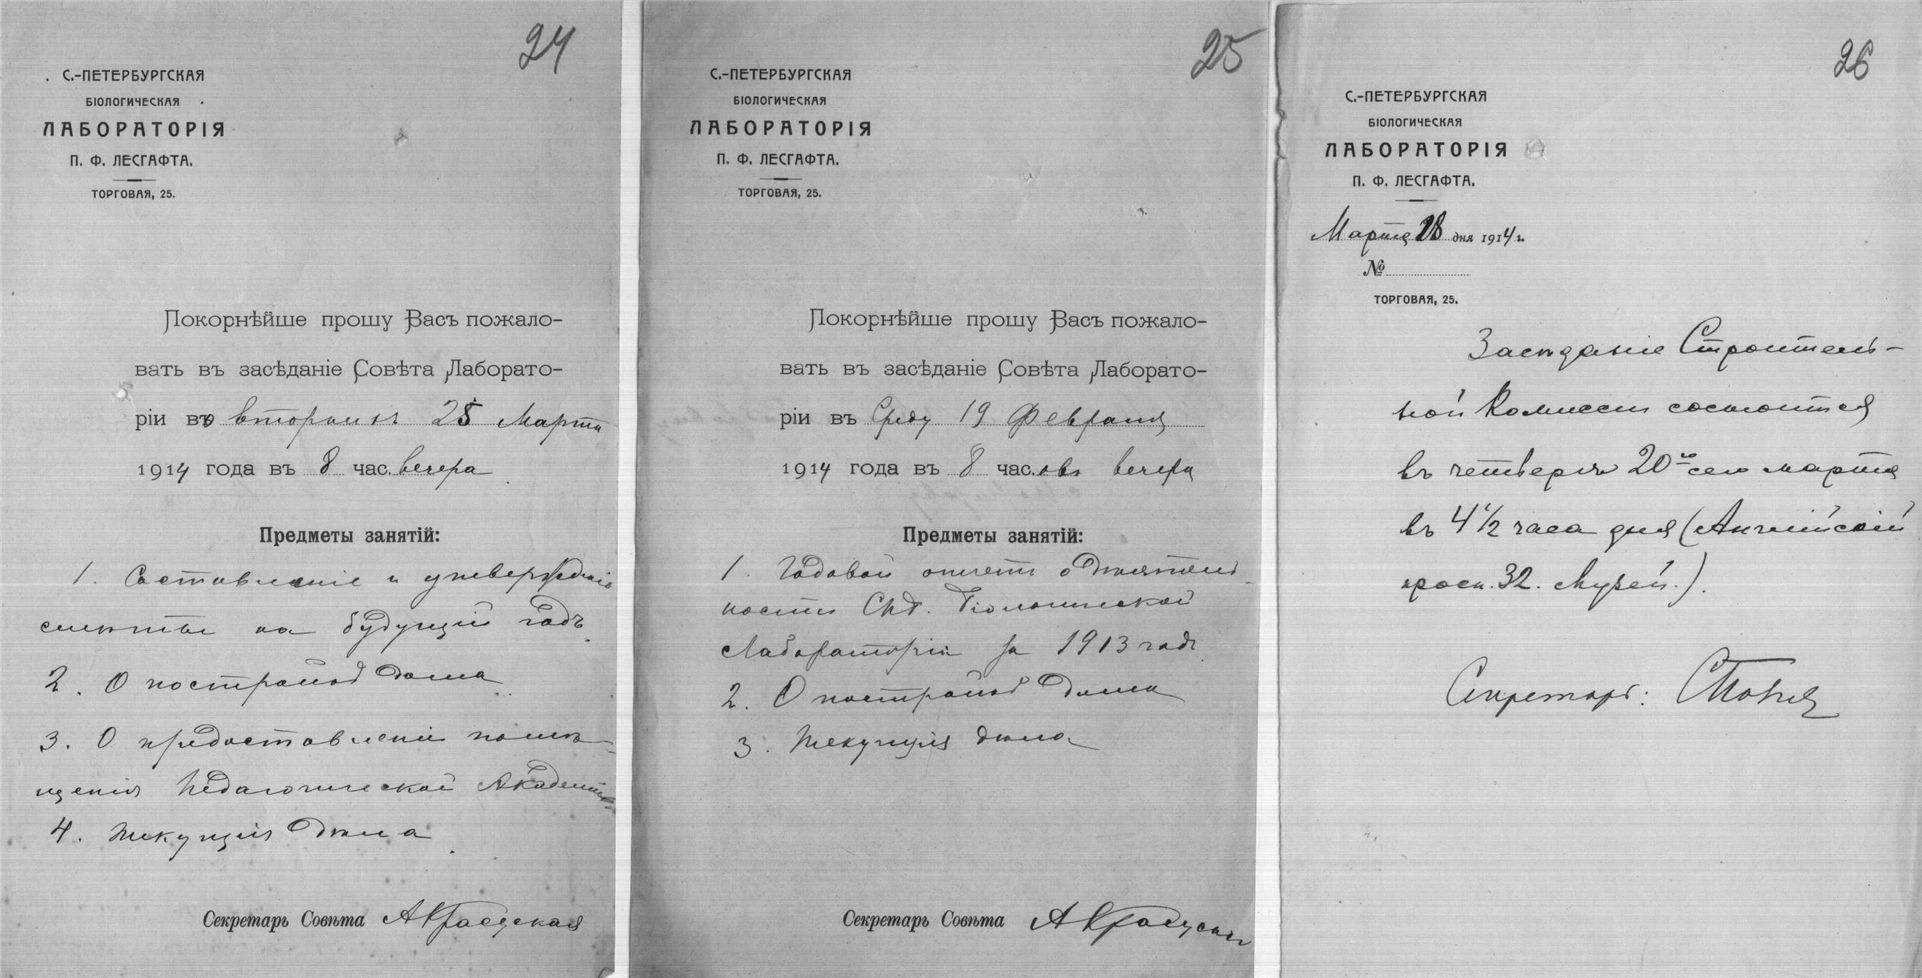 24
С.-ПЕТЕРБУРГСКАЯ
БІОЛОГИЧЕСКАЯ
ЛАБОРАТОРІЯ
П. Ф. ЛЕСГАФТА.
ТОРГОВАЯ, 25.
Покорнѣйше прошу Васъ пожало-
вать въ засѣданіе Совѣта Лаборато-
ріи во вторникъ 25 Марта
1914 года въ 8 час. вечера
Предметы занятій:
1. Составленіе и утвержденіе
смѣты на будущій годъ.
2. О постройкѣ дома
3. О предоставленіи помѣ-
щенія Педагогической Академіи
4. Текущія дѣла
Секретарь Совѣта
25
С.-ПЕТЕРБУРГСКАЯ
БІОЛОГИЧЕСКАЯ
ЛАБОРАТОРІЯ
П. Ф. ЛЕСГАФТА.
ТОРГОВАЯ, 25.
Покорнѣйше прошу Васъ пожало-
вать въ засѣданіе Совѣта Лаборато-
ріи въ Среду 19 Февраля
1914 года въ 8 час.овъ вечера
Предметы занятій:
1. Годовой отчетъ о дѣятель-
ности СПб. Біологической
Лабораторіи за 1913 годъ
2. О постройкѣ дома
3. Текущія дѣла
Секретарь Совѣта
26
С.-ПЕТЕРБУРГСКАЯ
БІОЛОГИЧЕСКАЯ
ЛАБОРАТОРІЯ
П. Ф. ЛЕСГАФТА.
Марта 18 дня 1914 г.
№
ТОРГОВАЯ, 25.
Засѣданіе Строитель-
ной Комиссіи состоится
въ четвергъ 20го сего марта
въ 4 1/2 часа дня (Англійскій
просп. 32. Музей.).
Секретарь: